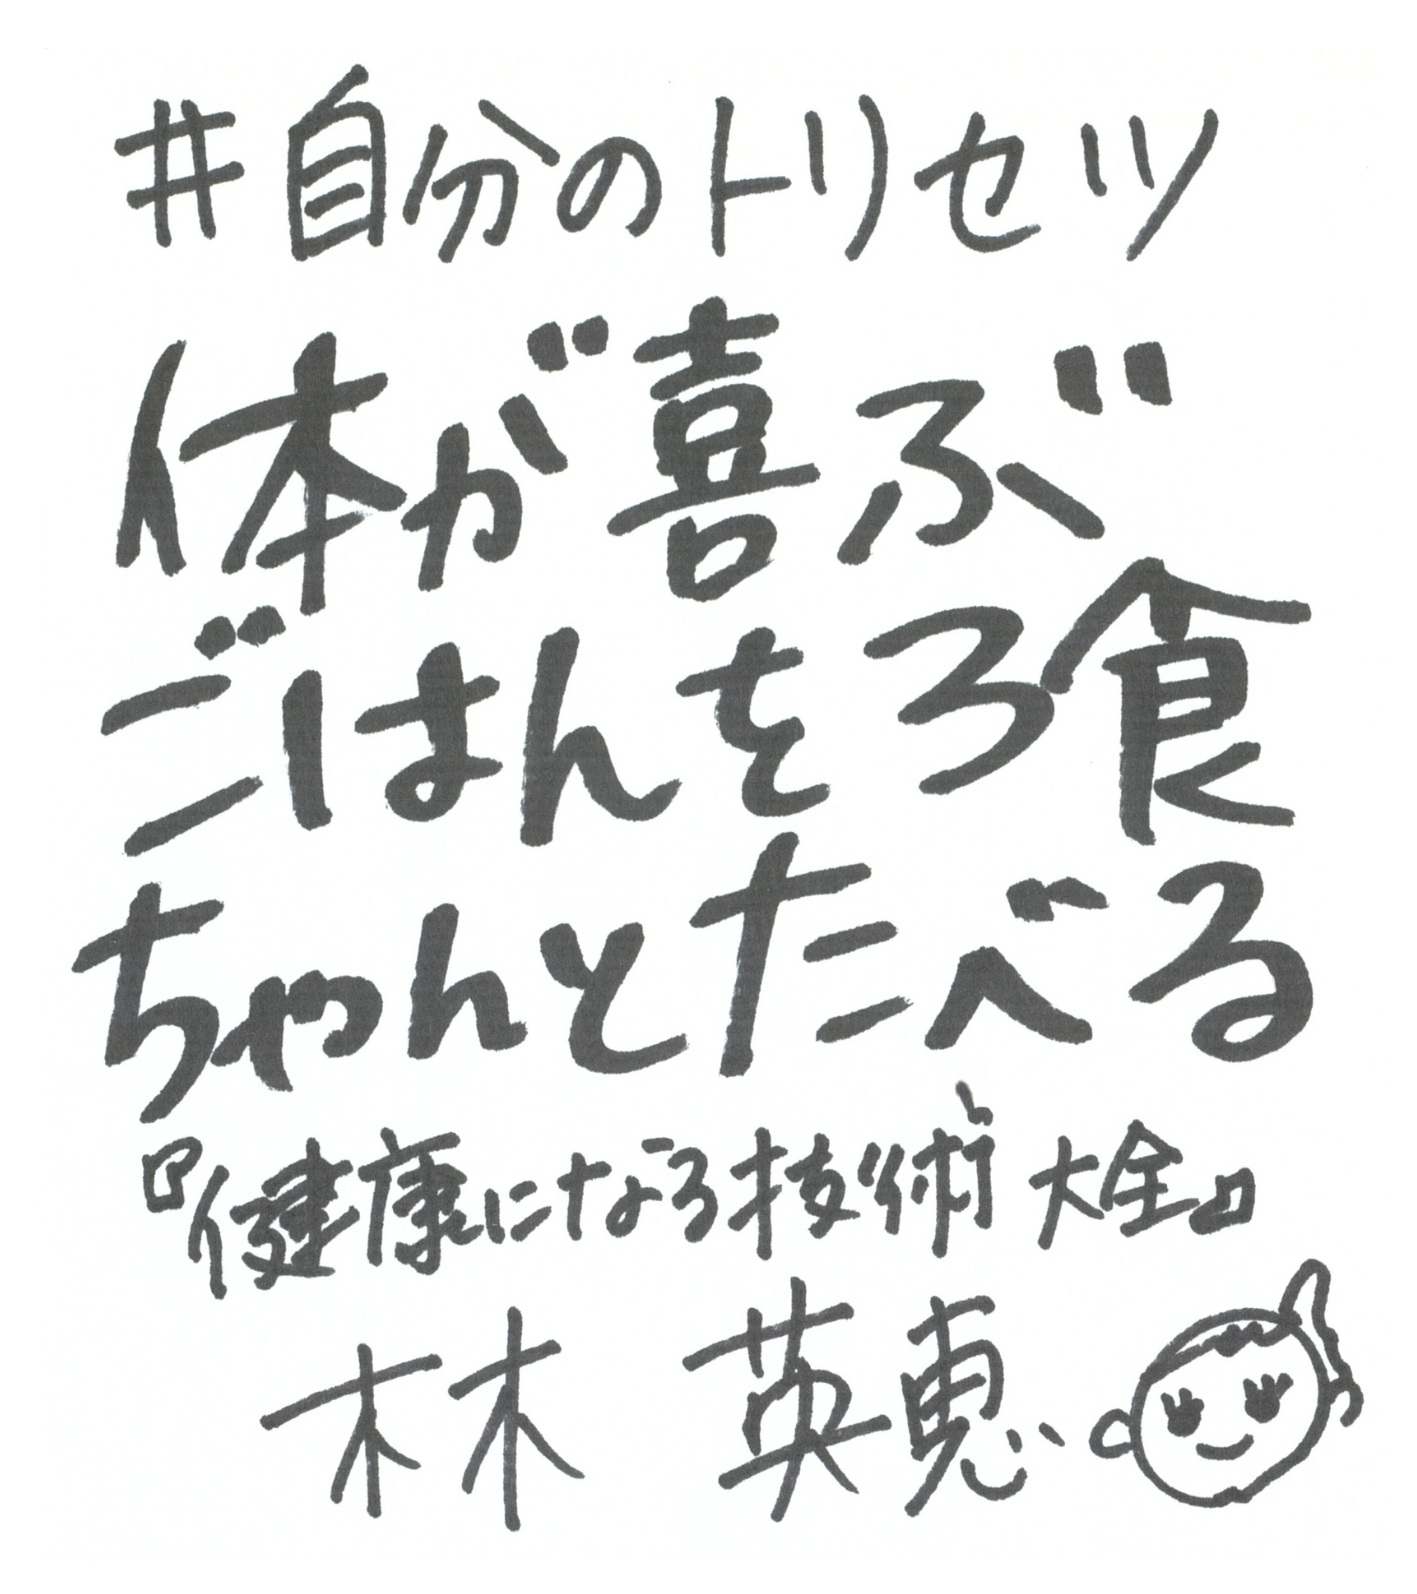 #自分のトリセツ
体が喜ぶ
ごはんを3食
ちゃんとたべる
『健康になる技術 大全』
林 英恵